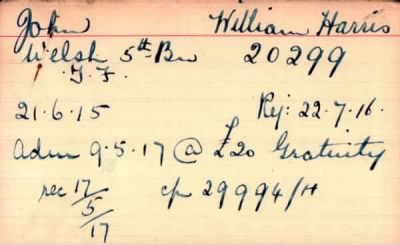 John William Harris
Welsh 5th Bn 20299
T.F.
21.6.15 Rej: 22.7.16.
Adm 9.5.17 @ £20 Gratuity
rec 17/5/17 c/n 29994/H